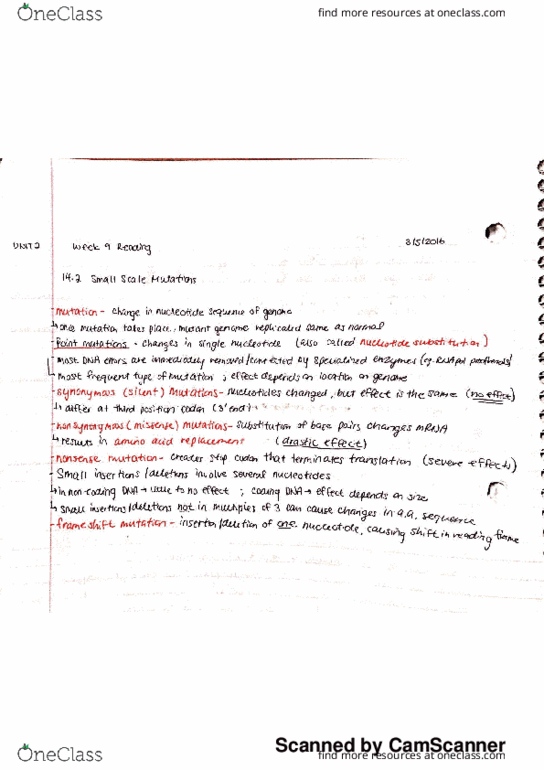 OneClass
find more resources at oneclass.com
UNIT 2 Week 9 Reading 3/5/2016
14.2 Small Scale Mutations
-mutation - change in nucleotide sequence of genome
↳ once mutation takes place, mutant genome replicated same as normal
-Point mutations - changes in single nucleotide (also called nucleotide substitution)
most DNA errors are immediately removed/corrected by specialized enzymes (eg.
most frequent type of mutation ; effect depends on location on genome
-synonymous (silent) mutations- nucleotides changed, but effect is the same (no effect)
↳ differ at third position codon (3' end)
-nonsynonymous (missense) mutations- substitution of base pairs changes mRNA
↳ results in amino acid replacement (drastic effect)
-nonsense mutation - creates stop codon that terminates translation (severe effects)
- Small insertions/deletions involve several nucleotides
↳ in non-coding DNA → little to no effect ; coding DNA → effect depends on size
↳ small insertions/deletions not in multiples of 3 can cause changes in a.a. sequence
-frameshift mutation - insertion/deletion of one nucleotide, causing shift in reading frame
Scanned by CamScanner
OneClass
find more resources at oneclass.com